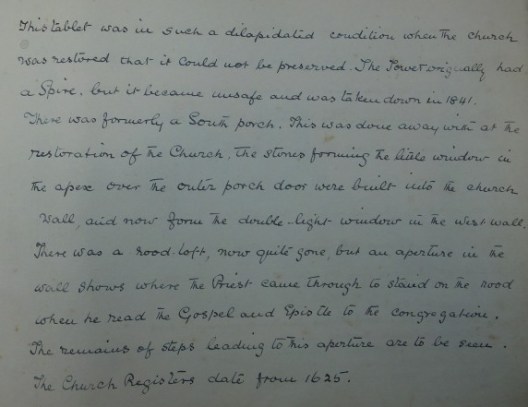 This tablet was in such a dilapidated condition when the church
was restored that it could not be preserved. The Tower originally had
a Spire, but it became unsafe and was taken down in 1841.
There was formerly a South porch. This was done away with at the
restoration of the Church, the stones forming the little window in
the apex over the outer porch door were built into the church
wall, and now form the double-light window in the west wall.
There was a rood-loft, now quite gone, but an aperture in the
wall shows where the Priest came through to stand on the rood
when he read the Gospel and Epistle to the congregation.
The remains of steps leading to this aperture are to be seen.
The Church Registers date from 1625.